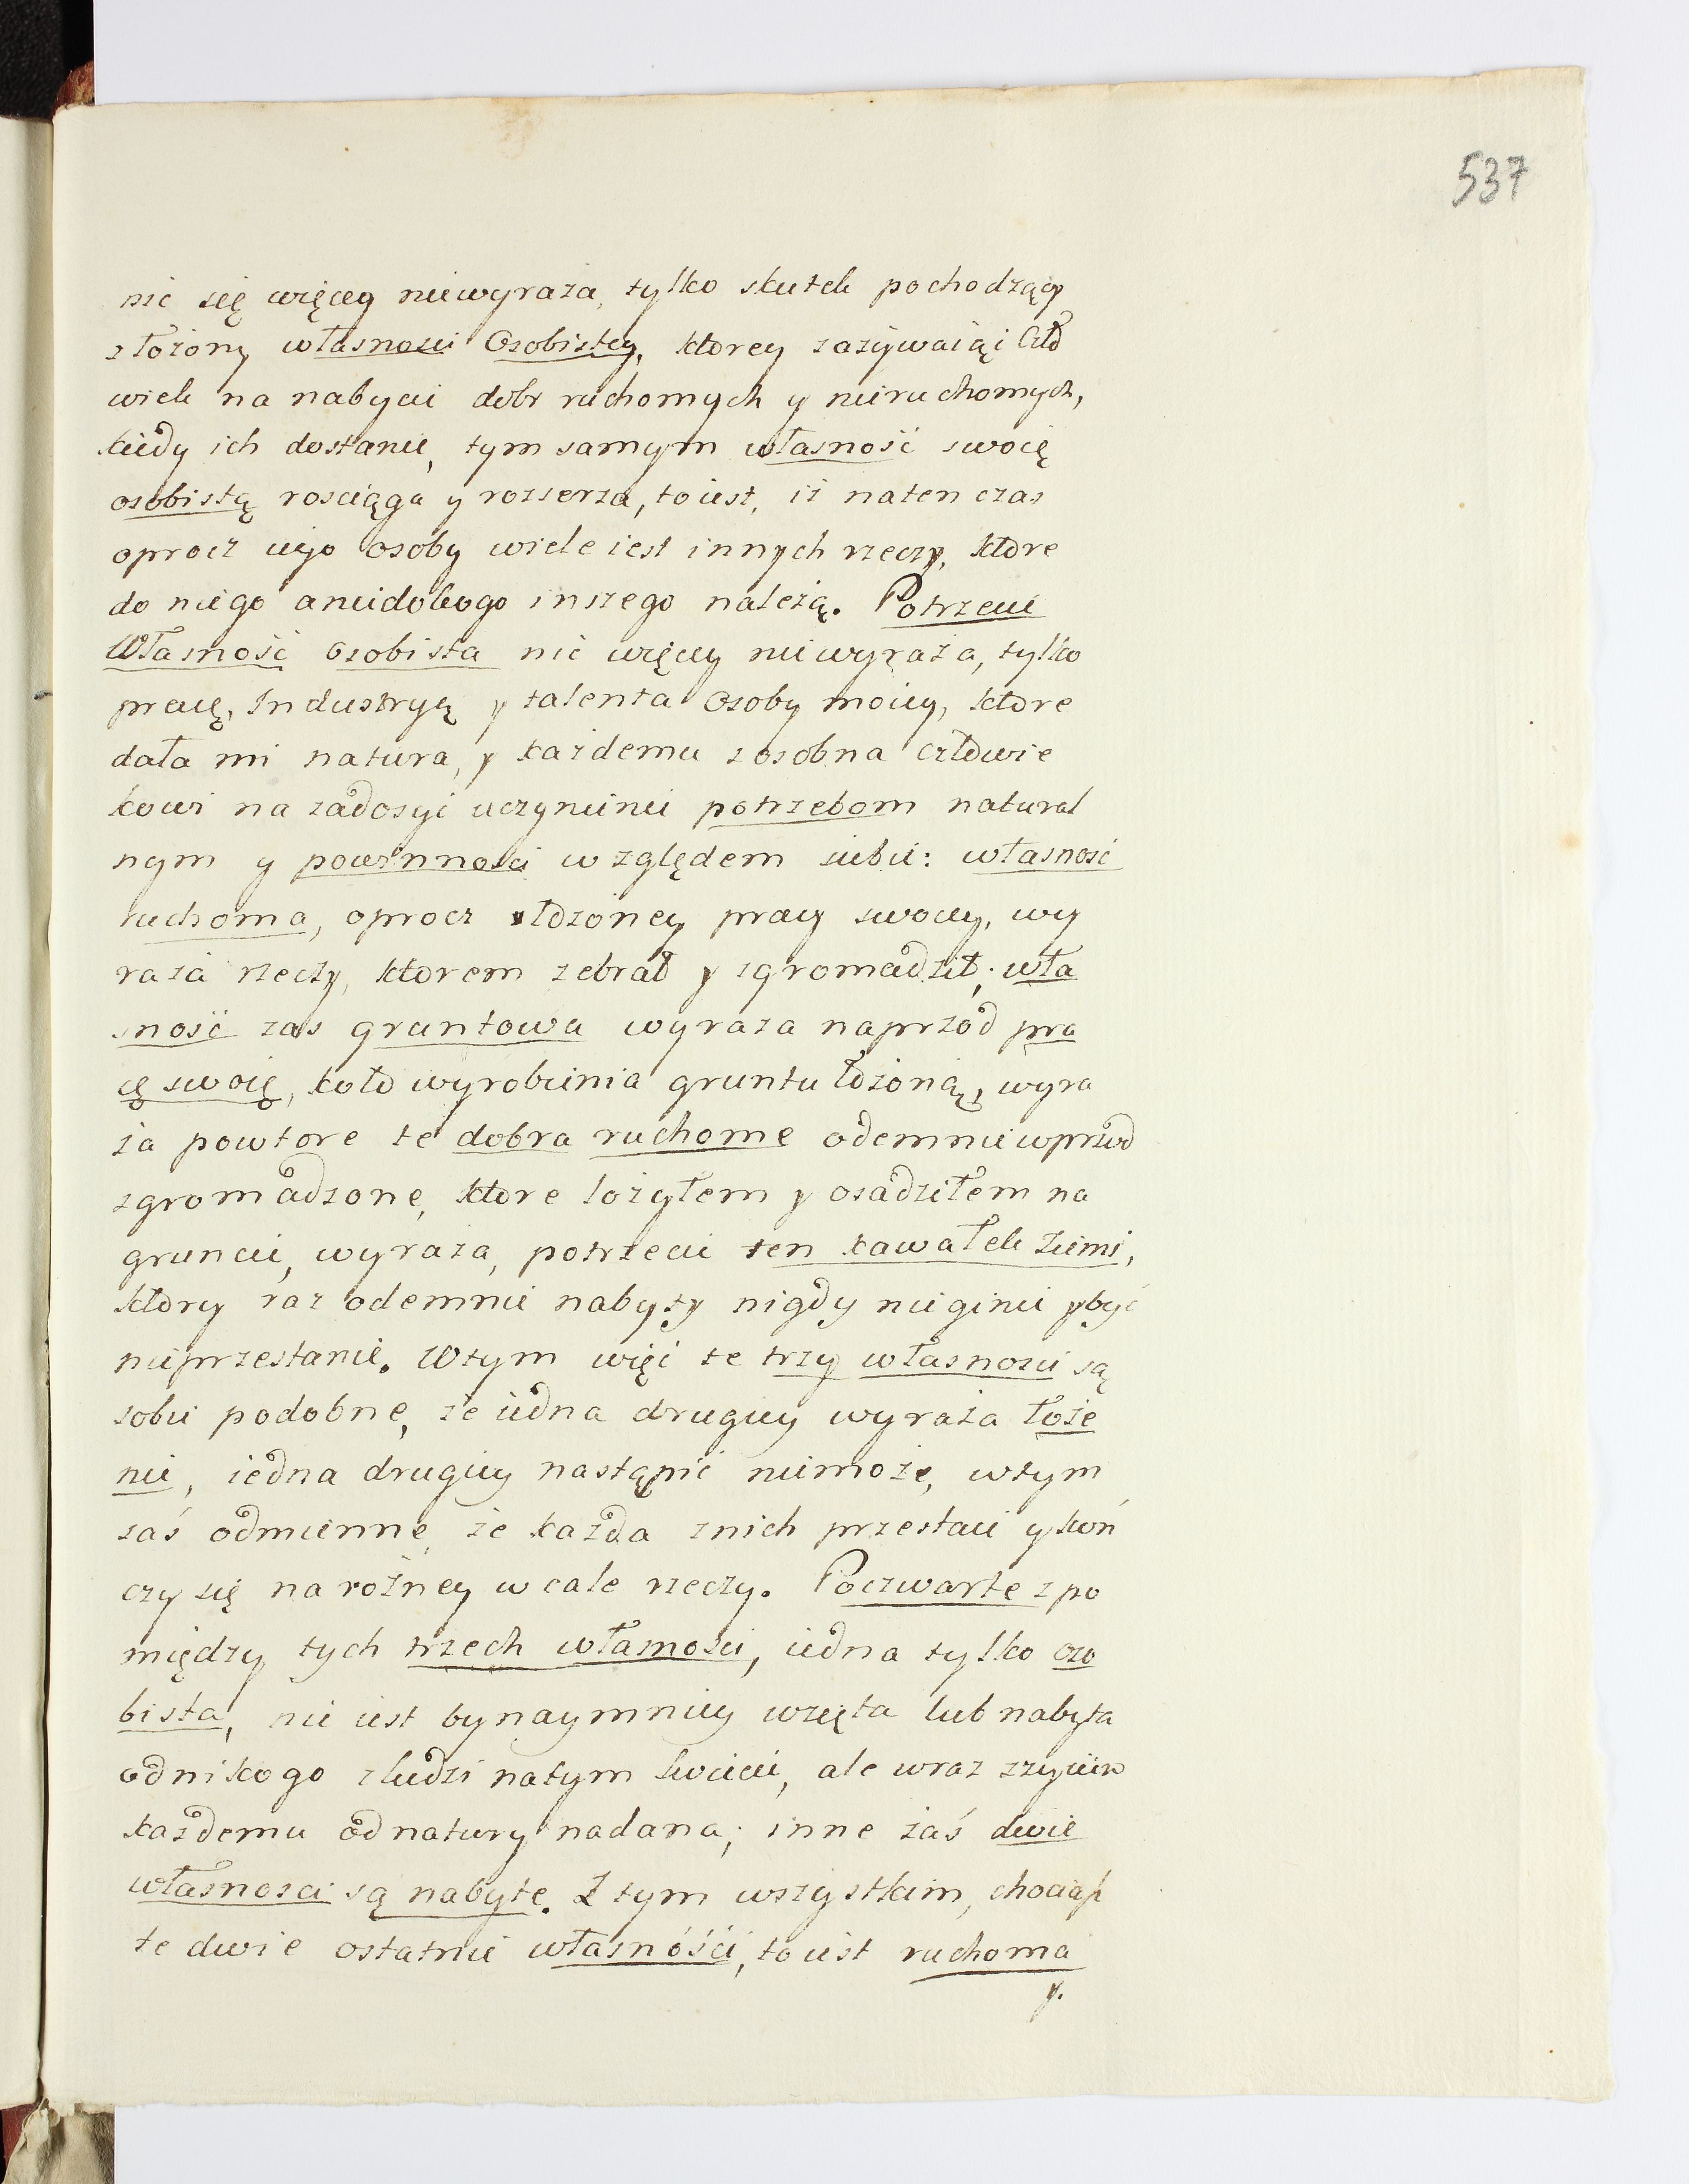 537
nic się więcey niewyraża, tylko skutek pochodzący
złożoney własnosci Osobistey, ktorey zażywaiąc Czło
wiek na nabycie dobr ruchomych y nieruchomych,
kiedy ich dostanie, tym samym własność swoię
osobistą rosciąga y rozserza, to iest, iż naten czas
oprocz iego osoby wiele iest innych rzeczy, ktore
do niego anieidokogo inszego należą. Potrzecie
Własność osobista nic więcey niewyraża, tylko
pracę, Industryę y talenta osoby moiey, ktore
dała mi natura, y każdemu zosobna człowie
kowi na zadosyć uczynienie potrzebom natural
nym y powinnosci względem siebie: własność
ruchoma, oprocz łożoney pracy swoiey, wy
raża rzeczy, ktorem zebrał y zgromadził; wła
sność zas gruntowa wyraza naprzód pra
cę swoię, koło wyrobienia gruntu łożoną, wyra
ża powtore te dobra ruchome odemnie wprzod
zgromadzone, ktore łożyłem y osadziłem na
gruncie, wyraża, potrzecie ten kawałek Ziemi,
ktory raz odemnie nabyty nigdy nieginie y być
nieprzestanie. W tym więc te trzy własnosci są
sobie podobne, że iedna drugiey wyraża łoże
nie, iedna drugiey nastąpić niemoże, wtym
zaś odmienne, że każda znich przestaie y koń
czy się na rożney w cale rzeczy. Poczwarte zpo
między tych trzech własności, iedna tylko oso
bista, nie iest bynaymniey wzięta lub nabyta
od nikogo z ludzi natym świecie, ale wraz zżyciem
każdemu od natury nadana; inne zaś dwie
własnosci są nabyte. Z tym wszystkim, chociaż
te dwie ostatnie własnóści, to iest ruchoma
y.